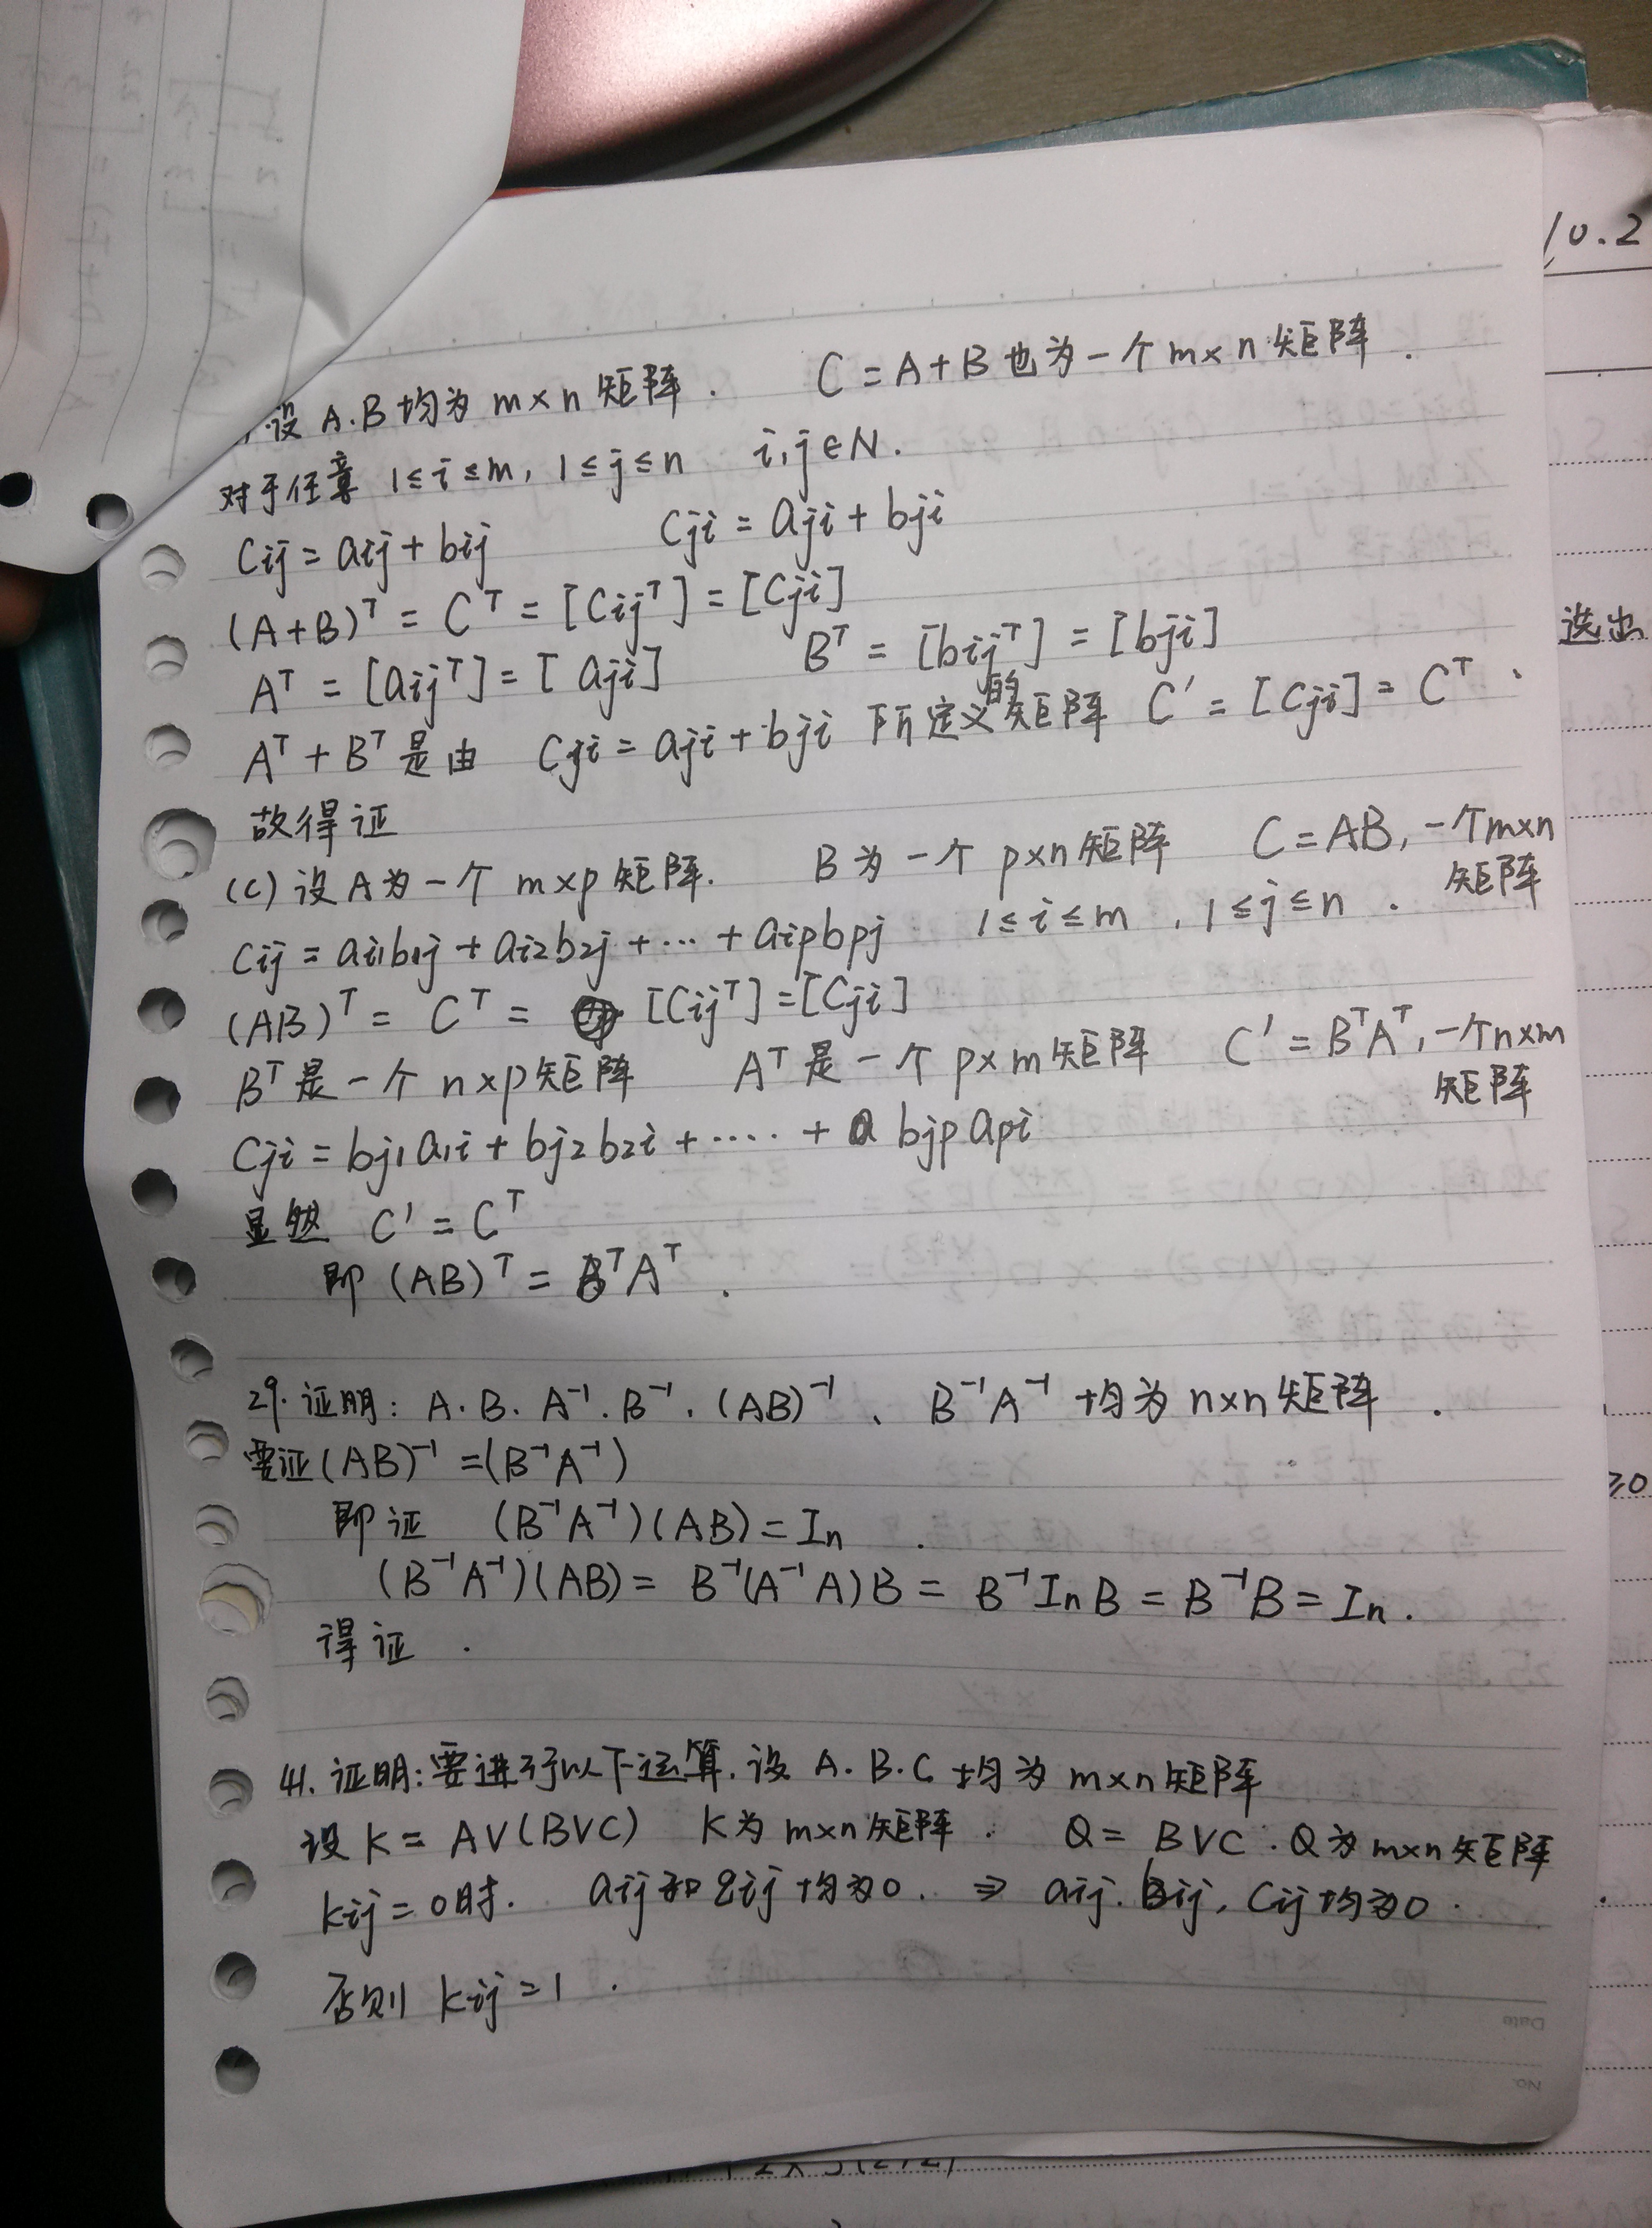 10.2
设 A.B 均为 m×n 矩阵. C = A+B 也为一个 m×n 矩阵.
对于任意 1≤i≤m, 1≤j≤n i,j∈N.
Cij = aij + bij Cji = aji + bji
(A+B)ᵀ = Cᵀ = [Cijᵀ] = [Cji]
Aᵀ = [aijᵀ] = [aji] Bᵀ = [bijᵀ] = [bji]
Aᵀ + Bᵀ 是由 Cji = aji + bji 所定义的矩阵 C′ = [Cji] = Cᵀ.
故得证
(C) 设 A 为一个 m×p 矩阵. B 为一个 p×n 矩阵 C = AB, 一个 m×n 矩阵
Cij = ai1b1j + ai2b2j + ··· + aipbpj 1≤i≤m, 1≤j≤n.
(AB)ᵀ = Cᵀ = [Cijᵀ] = [Cji]
Bᵀ 是一个 n×p 矩阵 Aᵀ 是一个 p×m 矩阵 C′ = BᵀAᵀ, 一个 n×m 矩阵
Cji = bj1a1i + bj2b2i + ····· + bjpapi
显然 C′ = Cᵀ
即 (AB)ᵀ = BᵀAᵀ.
29. 证明: A.B. A⁻¹. B⁻¹. (AB)⁻¹、B⁻¹A⁻¹ 均为 n×n 矩阵.
要证 (AB)⁻¹ = (B⁻¹A⁻¹)
即证 (B⁻¹A⁻¹)(AB) = In.
(B⁻¹A⁻¹)(AB) = B⁻¹(A⁻¹A)B = B⁻¹InB = B⁻¹B = In.
得证.
41. 证明: 要进行以下运算. 设 A.B.C 均为 m×n 矩阵
设 K = A∨(B∨C) K 为 m×n 矩阵. Q = B∨C. Q 为 m×n 矩阵
kij = 0 时. aij 和 qij 均为 0. ⇒ aij. bij, Cij 均为 0.
否则 kij = 1.
选出
≥0
Date
No.